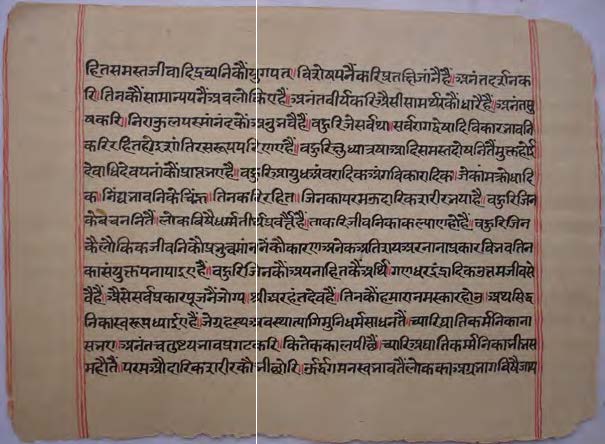 हित समस्त जीवादि द्रव्यनिकौं युगपत् विशेषपनैं करि प्रतक्षि जांनैं हैं। अनंतदर्शन क
रि। तिनकौं सामान्यपनैं अवलोकिए है। अनंतवीर्य करि अैसी सामर्थ्यकौं धारै हैं। अनंत सु
ष करि। निराकुल परमानंदकौं अनुभवै हैं। बहुरि जे सर्वथा। सर्व रागद्वेषादि विकारभावनि
करि रहित होइ शांतिरसरूप परिणए हैं। बहुरि क्षुधा त्रषा आदि समस्त दोषनितैं मुक्त होइ
देवाधिदेवपनांकौं प्राप्त भए हैं। बहुरि आयुध अंवरादिक अंगविकारादिक। जे काम क्रोधादि
क। निंद्यभावनिके चिंन्ह। तिनकरि रहित। जिनका परमऊदारिक शरीर भया है। बहुरि जिन
के बचननितैं। लोकविषै धर्मतीर्थ प्रवर्त्तै है। ताकरि जीवनिका कल्याण हो है। बहुरि जिन
कै लौकिक जीवनिकौं प्रभुत्व मांननेंकौ कारण अनेक अतिशय अर नाना प्रकार विभव तिन
का संयुक्तपना पाइए है। बहुरि जिनकौं अपना हित कै अर्थि। गणधर इंद्रादिक उत्तम जीव से
वै हैं। अैसे सर्व प्रकार पूजनें जोग्य। श्री अरहंत देव हैं। तिनकौं हमारा नमस्कार होऊ। अथ सिद्ध
निका स्वरूप ध्याईए है। जे ग्रहस्थ अवस्था त्यागि मुनिधर्म साधनतैं। च्यारि घातिकर्मनिका ना
स भए। अनंतचतुष्टय भाव प्रगट करि। कितेक काल पीछैं। च्यारि अघाति कर्मनिका भी भस
म होतैं। परम औदारिक शरीरकौं भी छोरि। ऊर्द्धगमन स्वभावतैं लोकका अग्रभागविषै जाय